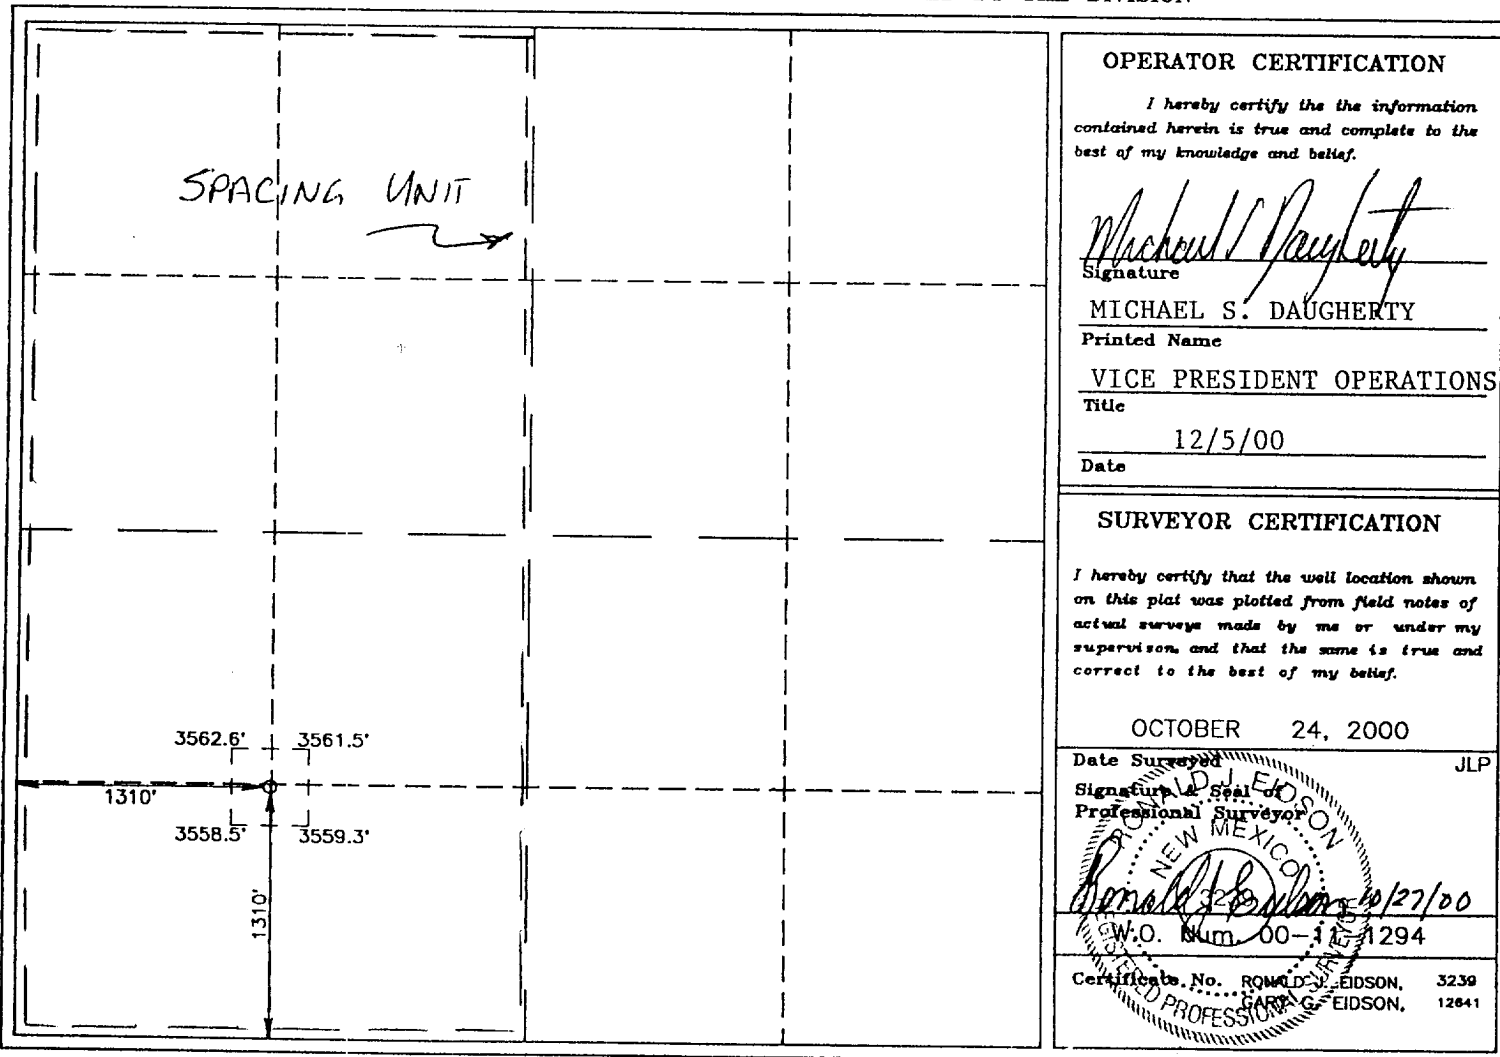 SPACING UNIT
3562.6'
3561.5'
1310'
3558.5'
3559.3'
1310'
OPERATOR CERTIFICATION
I hereby certify the the information
contained herein is true and complete to the
best of my knowledge and belief.
Michael S Daugherty
Signature
MICHAEL S. DAUGHERTY
Printed Name
VICE PRESIDENT OPERATIONS
Title
12/5/00
Date
SURVEYOR CERTIFICATION
I hereby certify that the well location shown
on this plat was plotted from field notes of
actual surveys made by me or under my
supervison, and that the same is true and
correct to the best of my belief.
OCTOBER 24, 2000
Date Surveyed JLP
Signature & Seal of
Professional Surveyor
RONALD J. EIDSON
NEW MEXICO
3239
REGISTERED PROFESSIONAL SURVEYOR
Ronald J Eidson 10/27/00
W.O. Num. 00-11-1294
Certificate No. RONALD J. EIDSON, 3239
GARY G. EIDSON, 12641